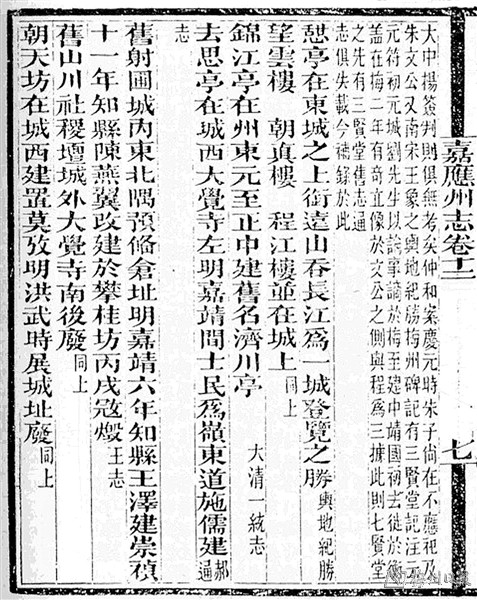 嘉應州志卷十二
七
大中揚簽判則俱無考矣仲和案慶元時朱子尚在不應祀及
朱文公又南宋王象之輿地紀勝梅州碑記有三賢堂記汪云
元符初元城劉先生以諫事謫於梅至建中靖國初去徙於衡
蓋在梅二年有奇立像於文公之側與程爲三據此則七賢堂
之先有三賢堂舊志通
志俱失載今補錄於此
憇亭在東城之上銜遠山吞長江爲一城登覽之勝 輿地紀勝
望雲樓 朝真樓 程江樓並在城上 同上
錦江亭在州東元至正中建舊名濟川亭 大清一統志
去思亭在城西大覺寺左明嘉靖間士民爲嶺東道施儒建 郝通
志
舊射圃城內東北隅預備倉址明嘉靖六年知縣王澤建崇禎
十一年知縣陳燕翼改建於攀桂坊丙戌寇燬 王志
舊山川社稷壇城外大覺寺南後廢 同上
朝天坊在城西建置莫攷明洪武時展城址廢 同上